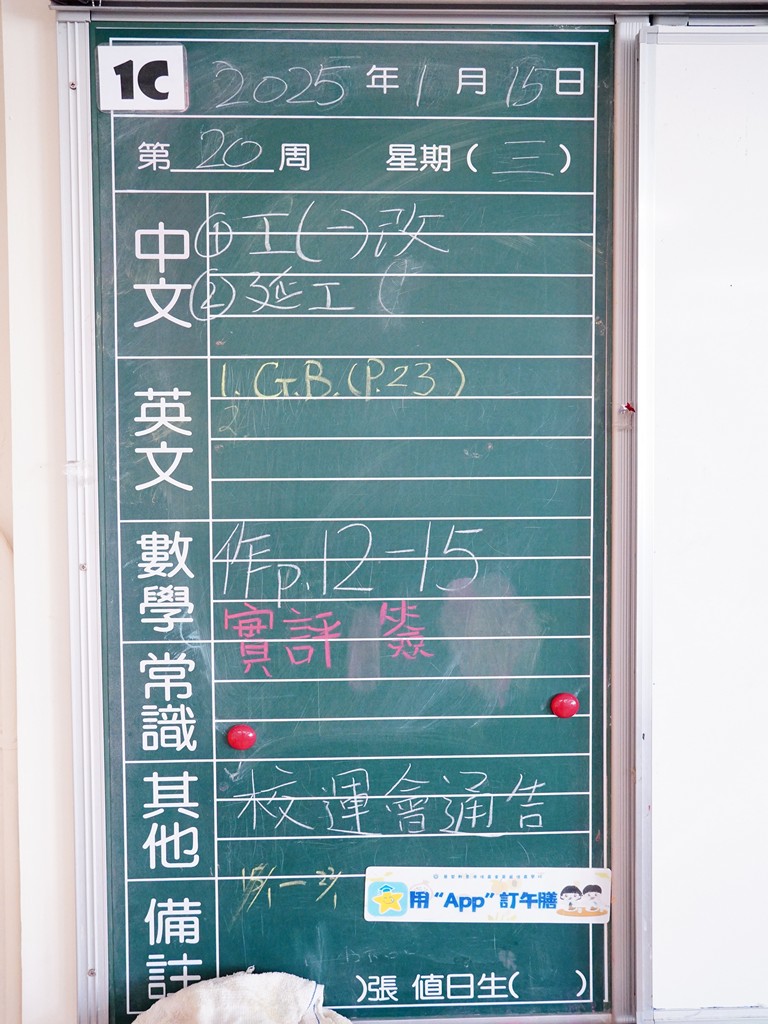 1C 2025年1月15日
第20周 星期(三)
中文 ①工(一)改
②延工(
英文 1. G.B.(P.23)
2.
數學 作p.12-15
常識 實評
其他 校運會通告
備註 15/1 —
用“App”訂午膳
)張 值日生( )